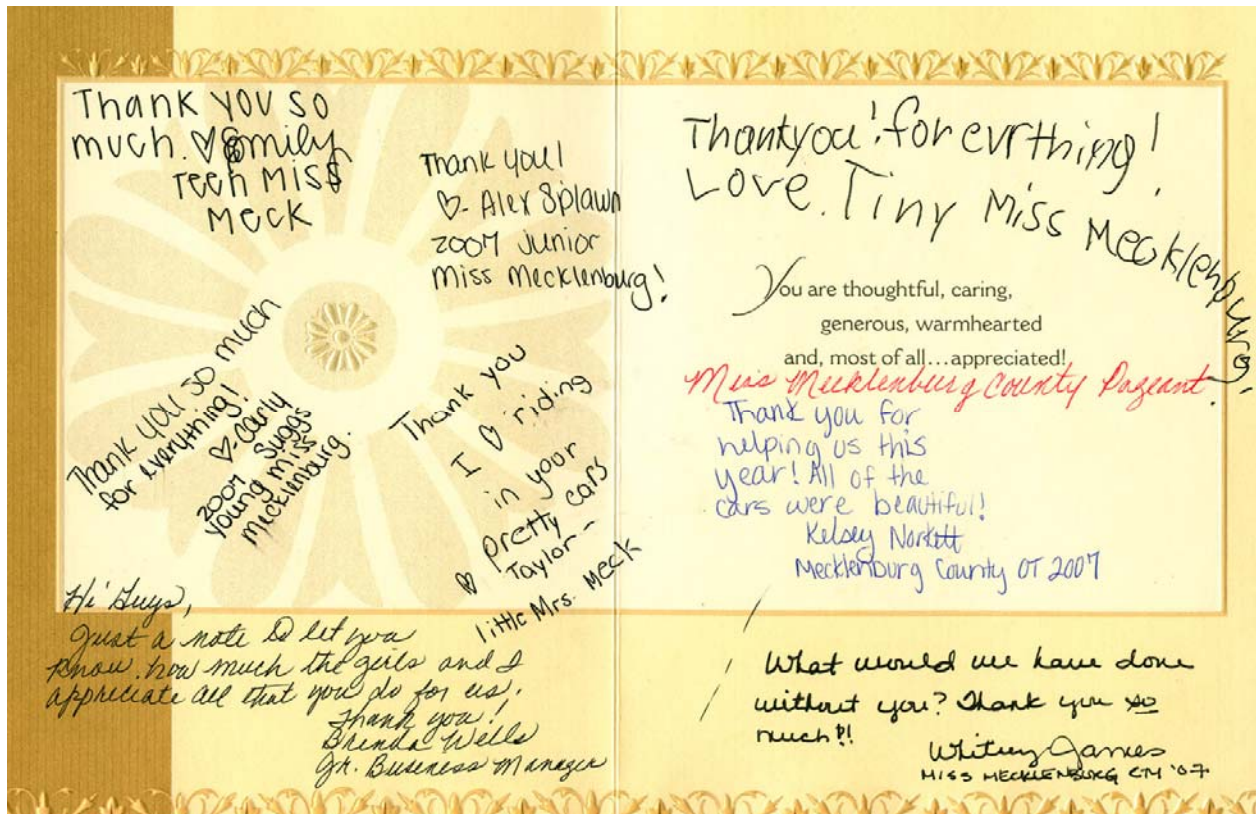 Thank you so
much. ♡ Emily
Teen Miss
Meck
Thank you!
♡- Alex Splawn
2007 Junior
Miss Mecklenburg!
Thank you so much
for everything!
♡-Carly
Suggs
2007
Young Miss
Mecklenburg.
Thank you
I ♡ riding
in your
pretty cars
♡ Taylor-
little Mrs. Meck
Hi Guys,
Just a note to let you
know how much the girls and I
appreciate all that you do for us.
Thank you!
Brenda Wells
Jr. Business Manager
Thankyou! for evrthing!
Love. Tiny Miss Mecklenburg!
You are thoughtful, caring,
generous, warmhearted
and, most of all...appreciated!
Miss Mecklenburg County Pageant.
Thank you for
helping us this
year! All of the
cars were beautiful!
Kelsey Norkett
Mecklenburg County OT 2007
What would we have done
without you? Thank you so
much?!
Whitney James
MISS MECKLENBURG CTY '07